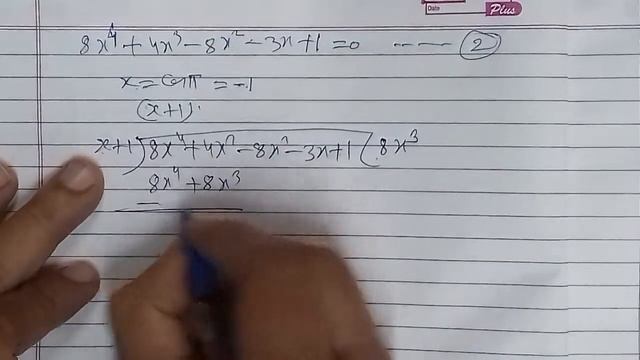 Date
Plus
8x⁴ + 4x³ - 8x² - 3x + 1 = 0 ------ ②
x = cosπ = -1
(x+1)
x+1) 8x⁴ + 4x² - 8x² - 3x + 1 ( 8x³
8x⁴ + 8x³